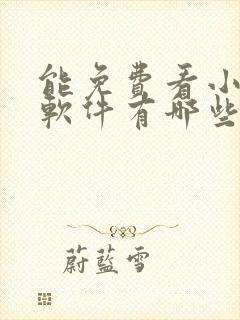 能免費看小
軟件有哪些
蔚藍雪